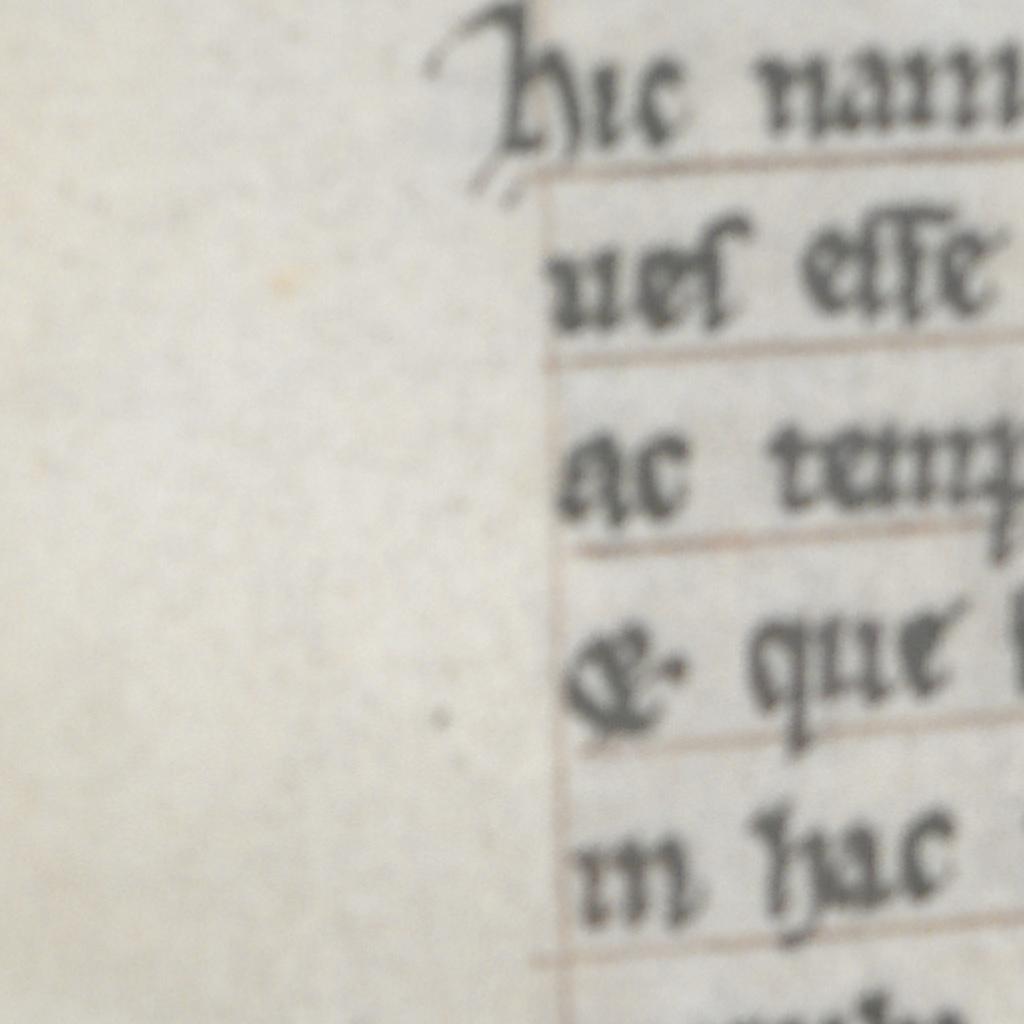 hic nam
ueſ eſſe
ac temp
&. que
in hac